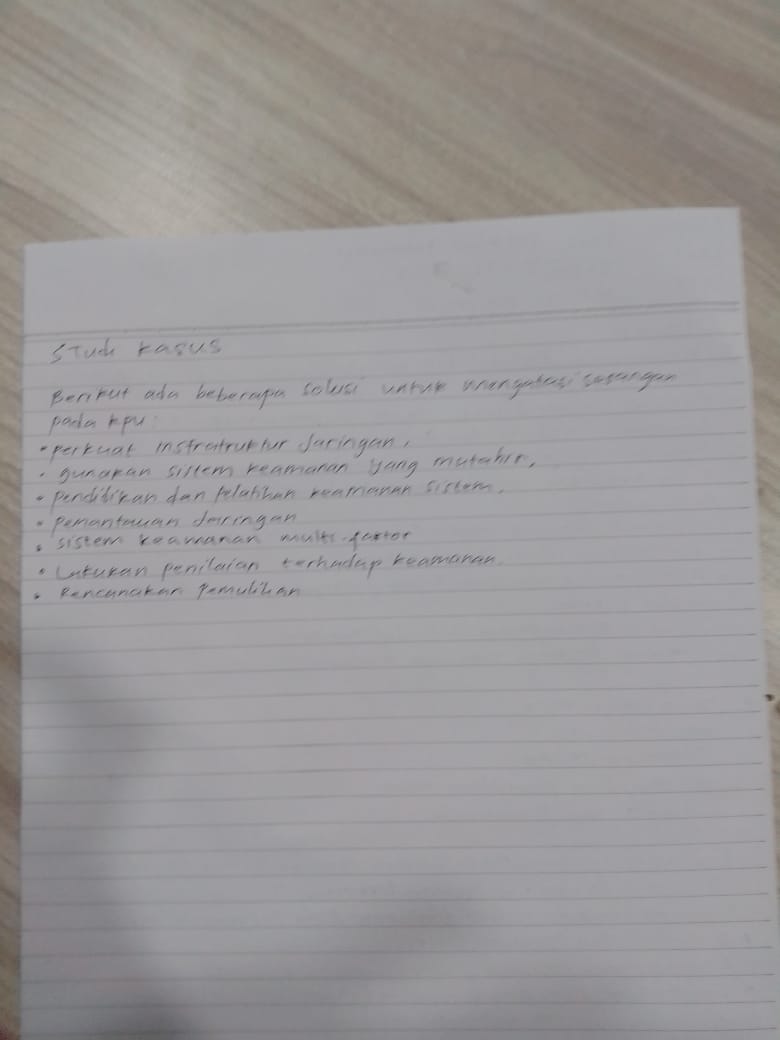 Studi kasus
Berikut ada beberapa solusi untuk mengatasi serangan
pada kpu:
• perkuat instratruktur Jaringan,
• gunakan sistem keamanan yang mutahir,
• pendidikan dan pelatihan keamanan sistem,
• pemantauan jaringan
• sistem keamanan multi-faktor
• Lakukan penilaian terhadap keamanan
• Rencanakan pemulihan